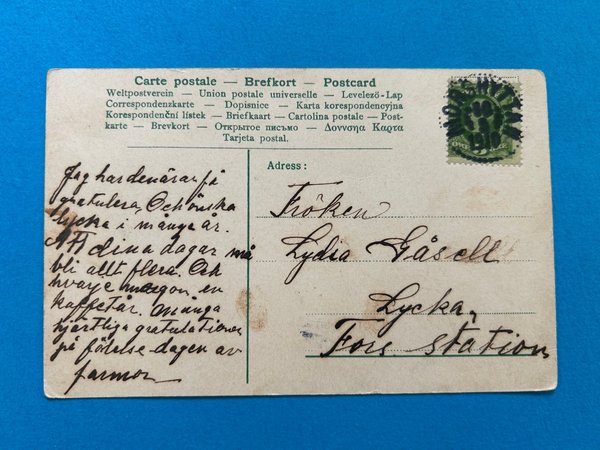 Carte postale — Brefkort — Postcard
Weltpostverein — Union postale universelle — Levelező-Lap
Correspondenzkarte — Dopisnice — Karta korespondencyjna
Korespondenční lístek — Briefkaart — Cartolina postale — Post-
karte — Brevkort — Открытое письмо — Δοννησα Καρτα
Tarjeta postal.
Adress:
Jag har den äran på
gratulera, Och önska
lycka i många år.
Att dina dagar må
bli allt flera. Och
hvarje morgon en
kaffetår. många
hjärtliga gratulationer
på födelsedagen av
farmor
Fröken
Lydia Gåsell
Lycka,
Fors Station